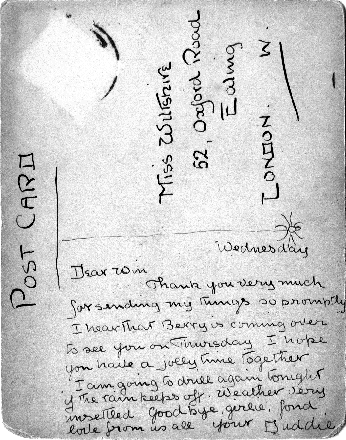 POST CARD
Miss Wiltshire
52, Oxford Road
Ealing
LONDON. W.
Wednesday
Dear Win
Thank you very much
for sending my things so promptly
I hear that Berry is coming over
to see you on Thursday I hope
you have a jolly time together
I am going to drill again tonight
if the rain keeps off. Weather very
unsettled Goodbye, girlie, fond
love from us all your Duddie